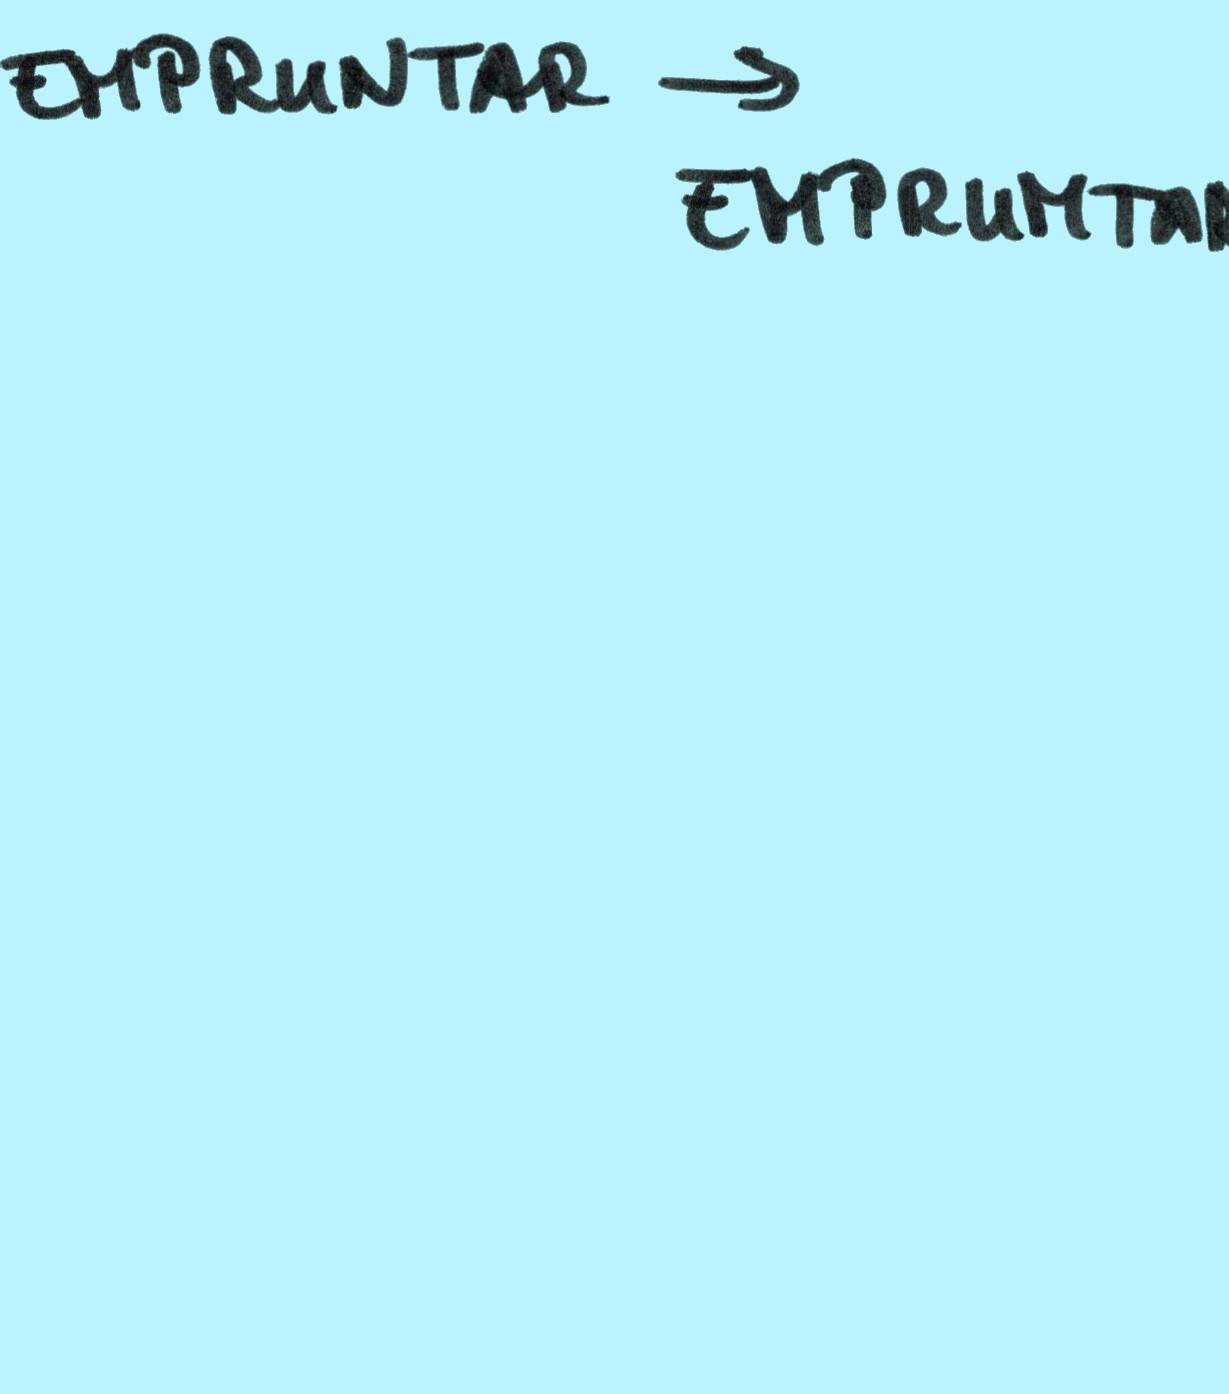 EMPRUNTAR →
EMPRUMTAR